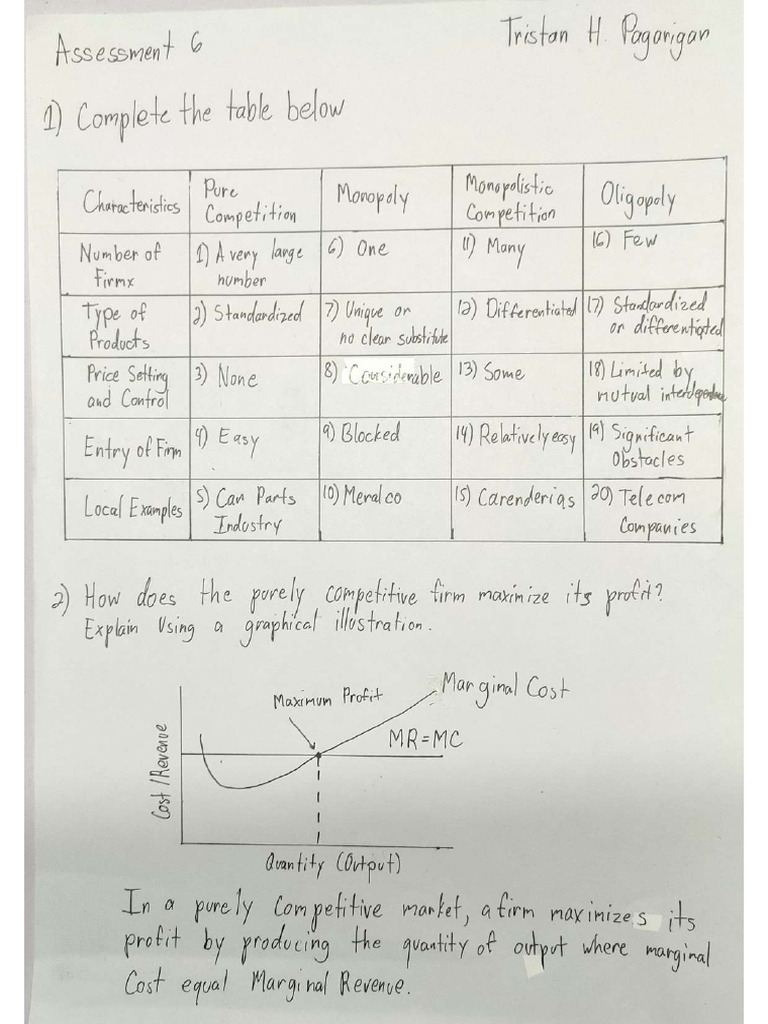 Assessment 6
Tristan H. Pagarigan
1) Complete the table below
Characteristics
Pure
Competition
Monopoly
Monopolistic
Competition
Oligopoly
Number of
Firmx
1) A very large
number
6) One
11) Many
16) Few
Type of
Products
2) Standardized
7) Unique or
no clear substitute
12) Differentiated
17) Standardized
or differentiated
Price Setting
and Control
3) None
8) Considerable
13) Some
18) Limited by
mutual interdependence
Entry of Firm
4) Easy
9) Blocked
14) Relatively easy
19) Significant
Obstacles
Local Examples
5) Car Parts
Industry
10) Meralco
15) Carenderias
20) Telecom
Companies
2) How does the purely competitive firm maximize its profit?
Explain Using a graphical illustration.
Marginal Cost
Maximum Profit
MR=MC
Cost/Revenue
Quantity (Output)
In a purely Competitive market, a firm maximizes its
profit by producing the quantity of output where marginal
Cost equal Marginal Revenue.